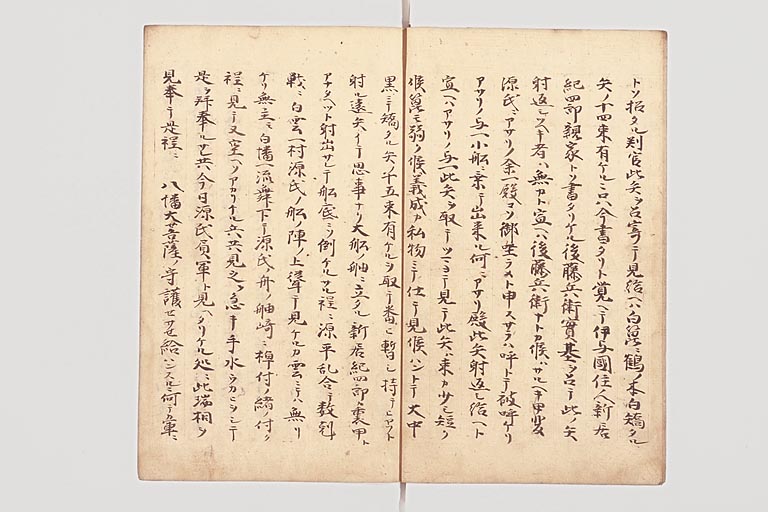 トソ招タル判官此矢ヲ召寄テ見給ヘハ白箆ニ鶴ノ本白矯タル
矢ノ十四束有ケルニ只今書タリト覚ヘテ伊与國住人新居
紀四郎親家トソ書タリケル後藤兵衛實基ヲ召テ此ノ矢
射返シスヘキ者ハ無カト宣ヘハ後藤兵衛ナトカ候ハサルヘキ甲斐
源氏ニアサリノ余一殿コソ御坐ラメト申スサラハ呼トテ被呼ケリ
アサリノ与一小船ニ乗テ出来ル何ニアサリ殿此矢射返シ給ヘト
宣ヘハアサリノ与一此矢ヲ取テツマヨテ見テ此矢ハ束カ少シ短ク
候箆モ弱ク候義成カ私物ニテ仕テ見候ハントテ大中
黒ニテ矯タル矢ノ十五束有ケルヲ取テ番ヒ暫シ持テヒヤウト
射ル遠矢ハイテ思事ナリ大船ノ舳ニ立タル新居紀四郎ノ裏甲ト
アナタヘツト射出サレテ船底ニソ倒ケルサル程ニ源平乱合テ数剋
戦ニ白雲一村源氏ノ船ノ陣ノ上ニ聳テ見ケルカ雲ニテハ無リ
ケリ無主シ白幡一流舞下テ源氏ノ舟ノ舳崎ニ棹付ノ緒ノ付ク
程ニ見テ又空ヘソアカリケル兵共見之急キ手水ウカヒヲシテ
是ヲ拝奉ルサレ共今日源氏員軍ト見ヘタリケル処ニ此瑞相ヲ
見奉テ是程ニ 八幡大菩薩ノ守護セサセ給ハンスルニ何テカ軍ニ